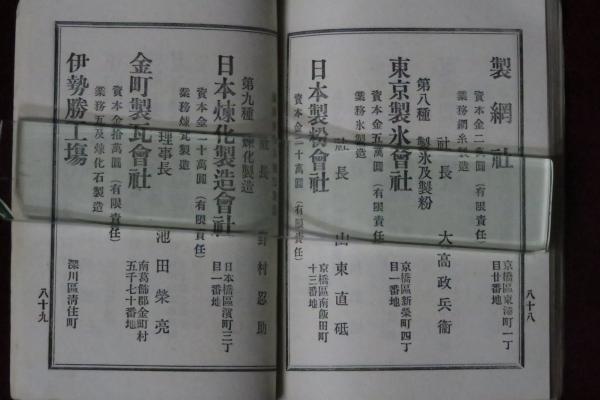 製網社
資本金二萬圓（有限責任）
業務網糸製造
社長 大高政兵衞
京橋區東湊町一丁
目廿番地
第八種 製氷及製粉
東京製氷會社
資本金五萬圓（有限責任）
業務氷製造
京橋區新榮町四丁
目一番地
日本製粉會社
資本金二十萬圓（有限責任）
社長 山東直砥
京橋區南飯田町
十三番地
八十八
第九種 煉化製造
日本煉化製造會社
資本金二十萬圓（有限責任）
業務煉瓦製造
社長 野村忍助
日本橋區濱町三丁
目一番地
金町製瓦會社
資本金拾萬圓（有限責任）
業務瓦及煉化石製造
理事長 池田榮亮
南葛飾郡金町村
五千七十番地
伊勢勝工塲
深川區清住町
八十九